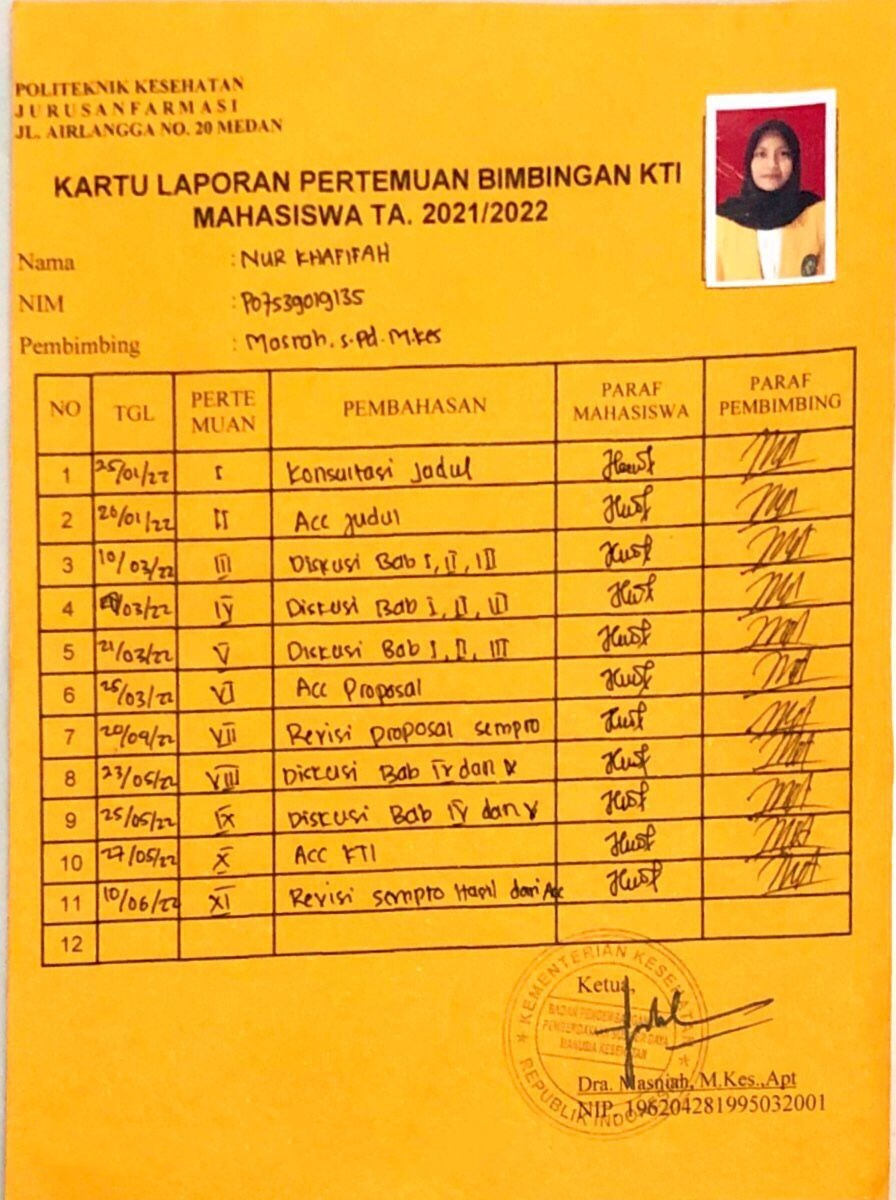 POLITEKNIK KESEHATAN
JURUSANFARMASI
JL. AIRLANGGA NO. 20 MEDAN
KARTU LAPORAN PERTEMUAN BIMBINGAN KTI
MAHASISWA TA. 2021/2022
Nama : NUR KHAFIFAH
NIM : P07539019135
Pembimbing : Masrah, S.Pd. M.Kes
NO TGL PERTE MUAN PEMBAHASAN PARAF MAHASISWA PARAF PEMBIMBING
1 25/01/22 I Konsultasi Judul
2 26/01/22 II Acc Judul
3 10/03/22 III Diskusi Bab I, II, III
4 /03/22 IV Diskusi Bab I, II, III
5 21/03/22 V Diskusi Bab I, II, III
6 25/03/22 VI Acc Proposal
7 VII Revisi proposal sempro
8 23/05/22 VIII Diskusi Bab IV dan V
9 25/05/22 IX Diskusi Bab IV dan V
10 27/05/22 X Acc KTI
11 10/06/22 XI Revisi sempro Hasil dan Acc
12
KEMENTERIAN KESEHATAN
REPUBLIK INDONESIA
Ketua,
BADAN PENGEMBANGAN
PEMBERDAYAAN SUMBER DAYA
MANUSIA KESEHATAN
Dra. Masniah, M.Kes.,Apt
NIP. 196204281995032001